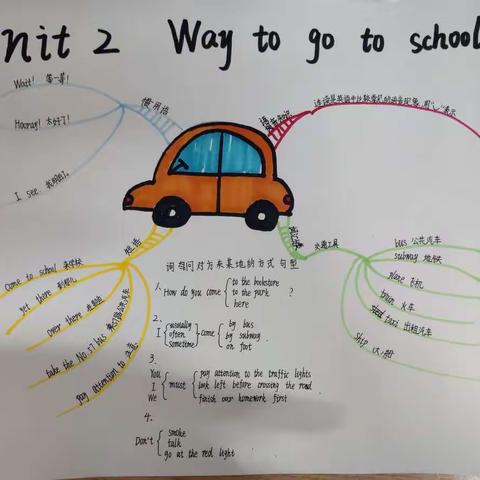 nit 2 Way to go to school
惯用语
Wait! 等一等!
Hooray! 太好了!
I see. 我明白了。
短语
come to school 来学校
get there 到那儿
over there 在那边
take the No.57 bus 乘57路公共汽车
pay attention to 注意
交通工具
bus 公共汽车
subway 地铁
plane 飞机
train 火车
taxi 出租汽车
ship (大)船
询问对方来某地的方式 句型
1.
How do you come { to the bookstore
to the park
here
?
2.
I { usually
often
sometime } come { by bus
by subway
on foot .
3.
You
I
We } must { pay attention to the traffic lights
look left before crossing the road
finish our homework first
4.
Don't { smoke
talk
go at the red light